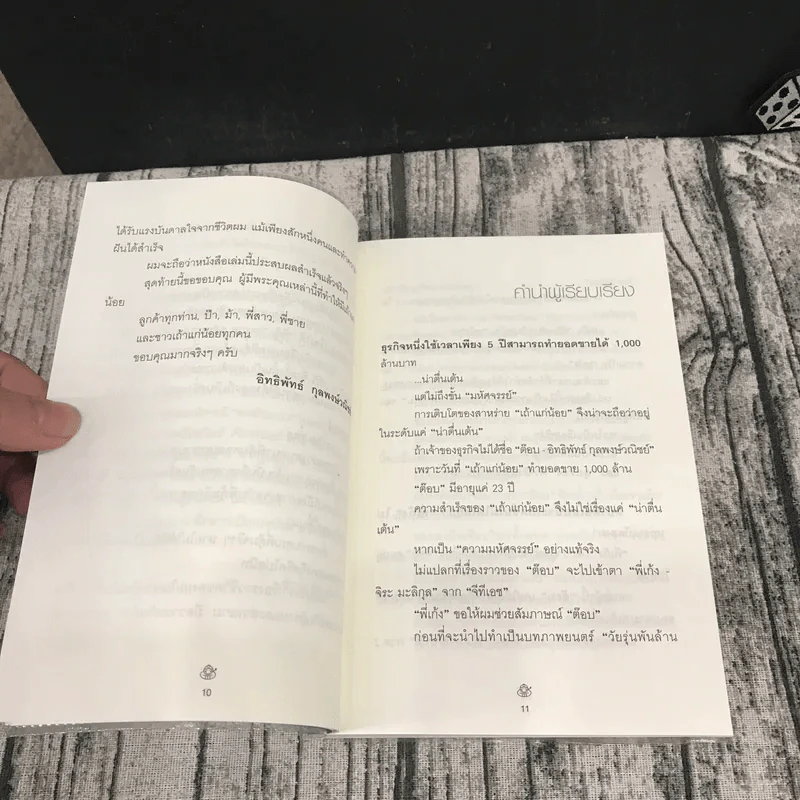 ได้รับแรงบันดาลใจจากชีวิตผม แม้เพียงสักหนึ่งคนและทำความ
ฝันได้สำเร็จ
ผมจะถือว่าหนังสือเล่มนี้ประสบผลสำเร็จแล้วจริงๆ
สุดท้ายนี้ขอขอบคุณ ผู้มีพระคุณเหล่านี้ที่ทำให้มีเถ้าแก่
น้อย
ลูกค้าทุกท่าน, ป๊า, ม้า, พี่สาว, พี่ชาย
และชาวเถ้าแก่น้อยทุกคน
ขอบคุณมากจริงๆ ครับ
อิทธิพัทธ์ กุลพงษ์วณิชย์
10
คำนำผู้เรียบเรียง
ธุรกิจหนึ่งใช้เวลาเพียง 5 ปีสามารถทำยอดขายได้ 1,000
ล้านบาท
...น่าตื่นเต้น
แต่ไม่ถึงขั้น “มหัศจรรย์”
การเติบโตของสาหร่าย “เถ้าแก่น้อย” จึงน่าจะถือว่าอยู่
ในระดับแค่ “น่าตื่นเต้น”
ถ้าเจ้าของธุรกิจไม่ได้ชื่อ “ต๊อบ - อิทธิพัทธ์ กุลพงษ์วณิชย์”
เพราะวันที่ “เถ้าแก่น้อย” ทำยอดขาย 1,000 ล้าน
“ต๊อบ” มีอายุแค่ 23 ปี
ความสำเร็จของ “เถ้าแก่น้อย” จึงไม่ใช่เรื่องแค่ “น่าตื่น
เต้น”
หากเป็น “ความมหัศจรรย์” อย่างแท้จริง
ไม่แปลกที่เรื่องราวของ “ต๊อบ” จะไปเข้าตา “พี่เก้ง -
จิระ มะลิกุล” จาก “จีทีเอช”
“พี่เก้ง” ขอให้ผมช่วยสัมภาษณ์ “ต๊อบ”
ก่อนที่จะนำไปทำเป็นบทภาพยนตร์ “วัยรุ่นพันล้าน
11